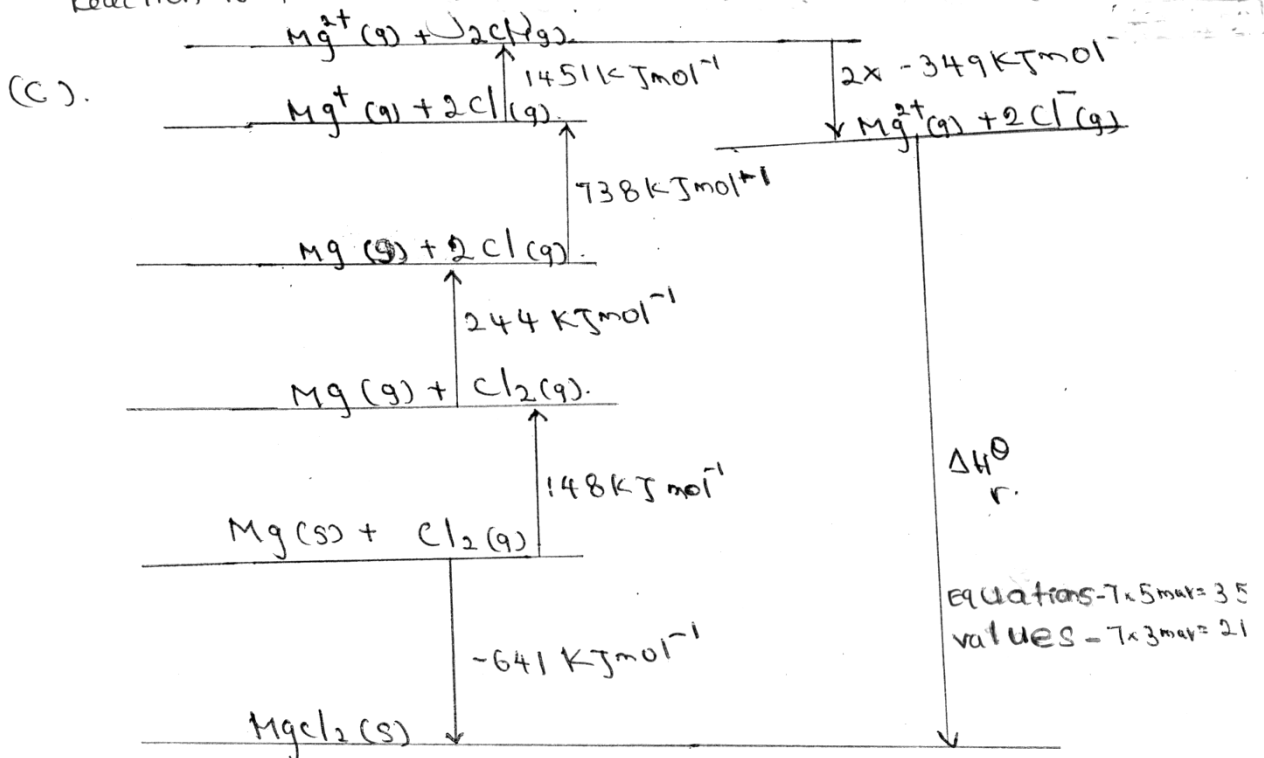 Mg²⁺(g) + 2Cl(g).
(C).
1451kJmol⁻¹
2x -349KJmol⁻
Mg⁺(g) + 2Cl(g).
Mg²⁺(g) + 2Cl⁻(g)
738kJmol⁺¹
Mg (g) + 2Cl(g).
244 KJmol⁻¹
Mg(g) + Cl₂(g).
148KJmol⁻¹
ΔH^θ r.
Mg(s) + Cl₂(g)
Equations-7x5mar=35
values-7x3mar=21
-641 KJmol⁻¹
MgCl₂(s)